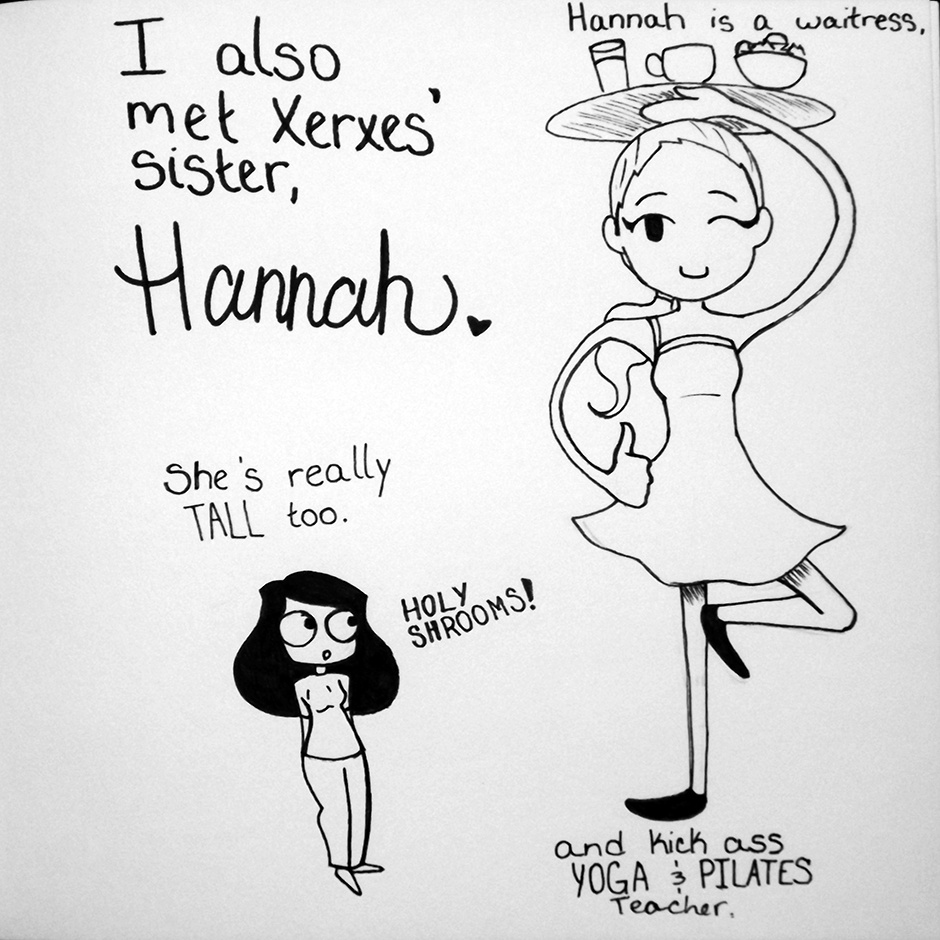 I also
met Xerxes'
sister,
Hannah.
Hannah is a waitress,
She's really
TALL too.
HOLY
SHROOMS!
and kick ass
YOGA & PILATES
Teacher.